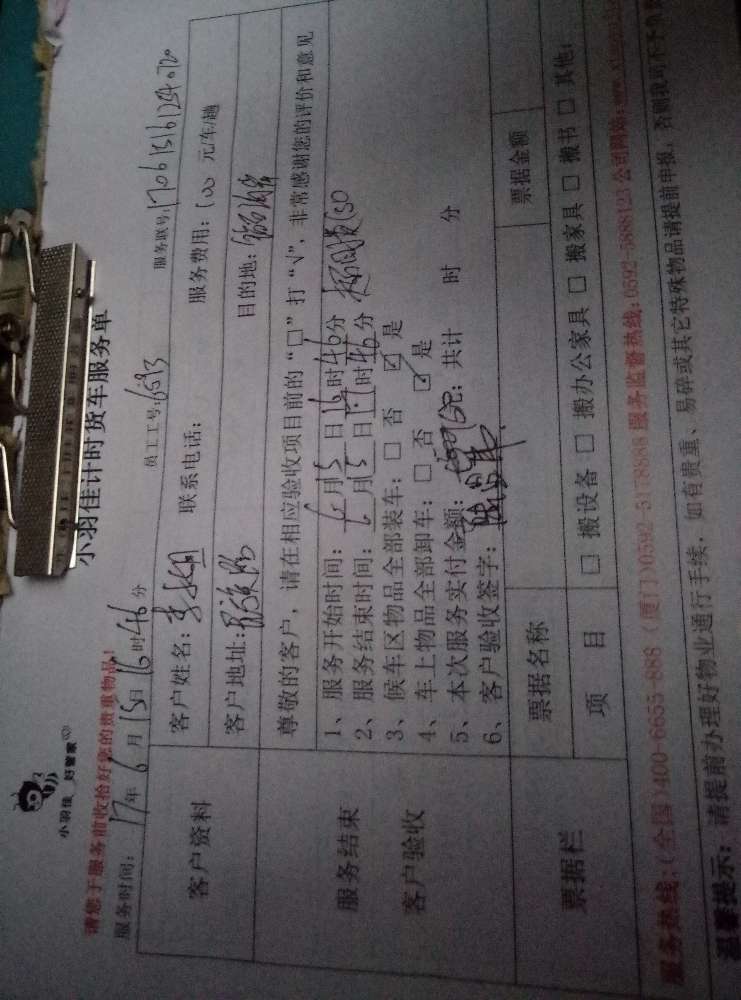 小羽佳 好管家
小羽佳计时货车服务单
请您于服务前收拾好您的贵重物品!
服务时间: 17年 6 月 15日 16时46分 员工工号: 6593 服务联号: 170615161254070
客户资料
客户姓名: 联系电话: 服务费用: 100 元/车/趟
客户地址: 目的地:
服务结束
客户验收
尊敬的客户,请在相应验收项目前的“□”打“√”,非常感谢您的评价和意见
1、服务开始时间: 6 月 15 日 16 时 46 分
2、服务结束时间: 6 月 15 日 17 时 46 分
3、候车区物品全部装车: □ 否 ☑ 是
4、车上物品全部卸车: □ 否 ☑ 是
5、本次服务实付金额: 元; 共计 时 分
6、客户验收签字:
票据栏
票据名称 票据金额
项 目 □ 搬设备 □ 搬办公家具 □ 搬家具 □ 搬书 □ 其他:
服务热线:(全国)400-6655-888 (厦门)0592-5178888 服务监督热线:0592-5888123 公司网站:
温馨提示: 请提前办理好物业通行手续, 如有贵重、易碎或其它特殊物品请提前申报, 否则我司不予负